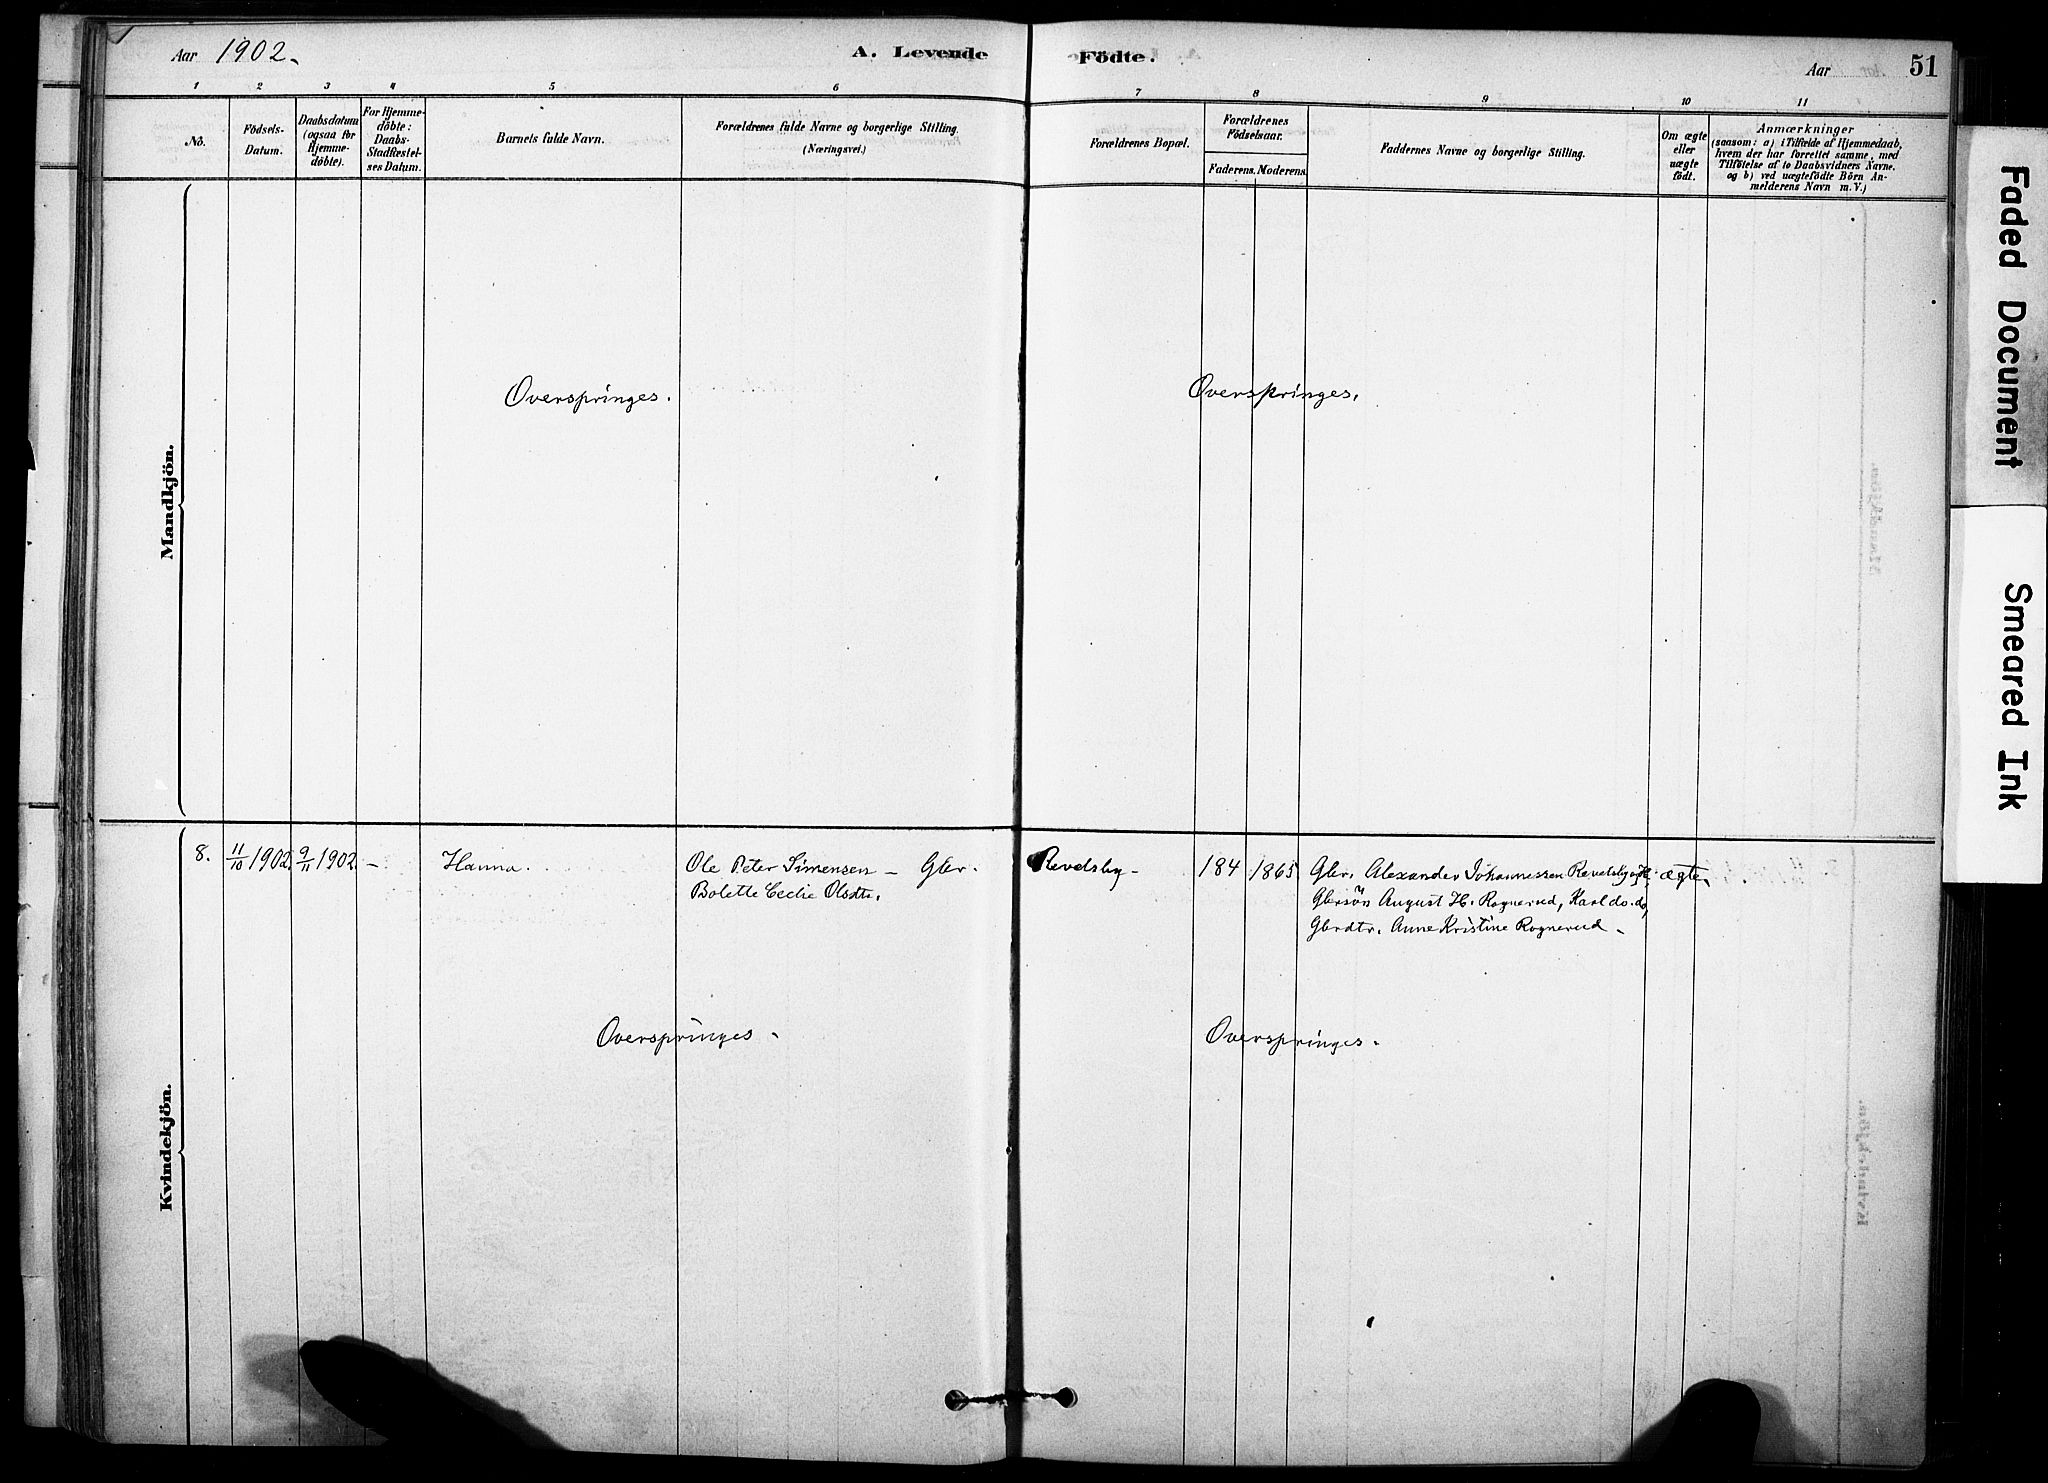 Aar 1902.
A. Levende Födte.
Aar
51
1 2 3 4 5 6 7 8 9 10 11
No.
Födsels-
Datum.
Daabsdatum
(ogsaa for
Hjemme-
döbte).
For Hjemme-
döbte:
Daabs-
Stadfæstel-
ses Datum.
Barnets fulde Navn.
Forældrenes fulde Navne og borgerlige Stilling.
(Næringsvei.)
Forældrenes Bopæl.
Forældrenes
Födselsaar.
Faderens. Moderens.
Faddernes Navne og borgerlige Stilling.
Om ægte
eller
uægte
födt.
Anmærkninger
(saasom: a) i Tilfælde af Hjemmedaab,
hvem der har forrettet samme, med
Tilföielse af to Daabsvidners Navne,
og b) ved uægtefödte Börn An-
melderens Navn m. V.)
Mandkjön.
Overspringes.
Overspringes.
Kvindekjön.
8. 11/10 1902. 9/11 1902. – Hanna. Ole Peter Simensen – Gbr. Revelsby – 184 1865 Gbr. Alexander Johannessen Revelsby ægte.
Bolette Cecilie Olsdtr. Gbrsön August H. Rognerud, Karl do. do,
Gbrdtr. Anne Kristine Rognerud –
Overspringes –
Overspringes –
Faded Document
Smeared Ink